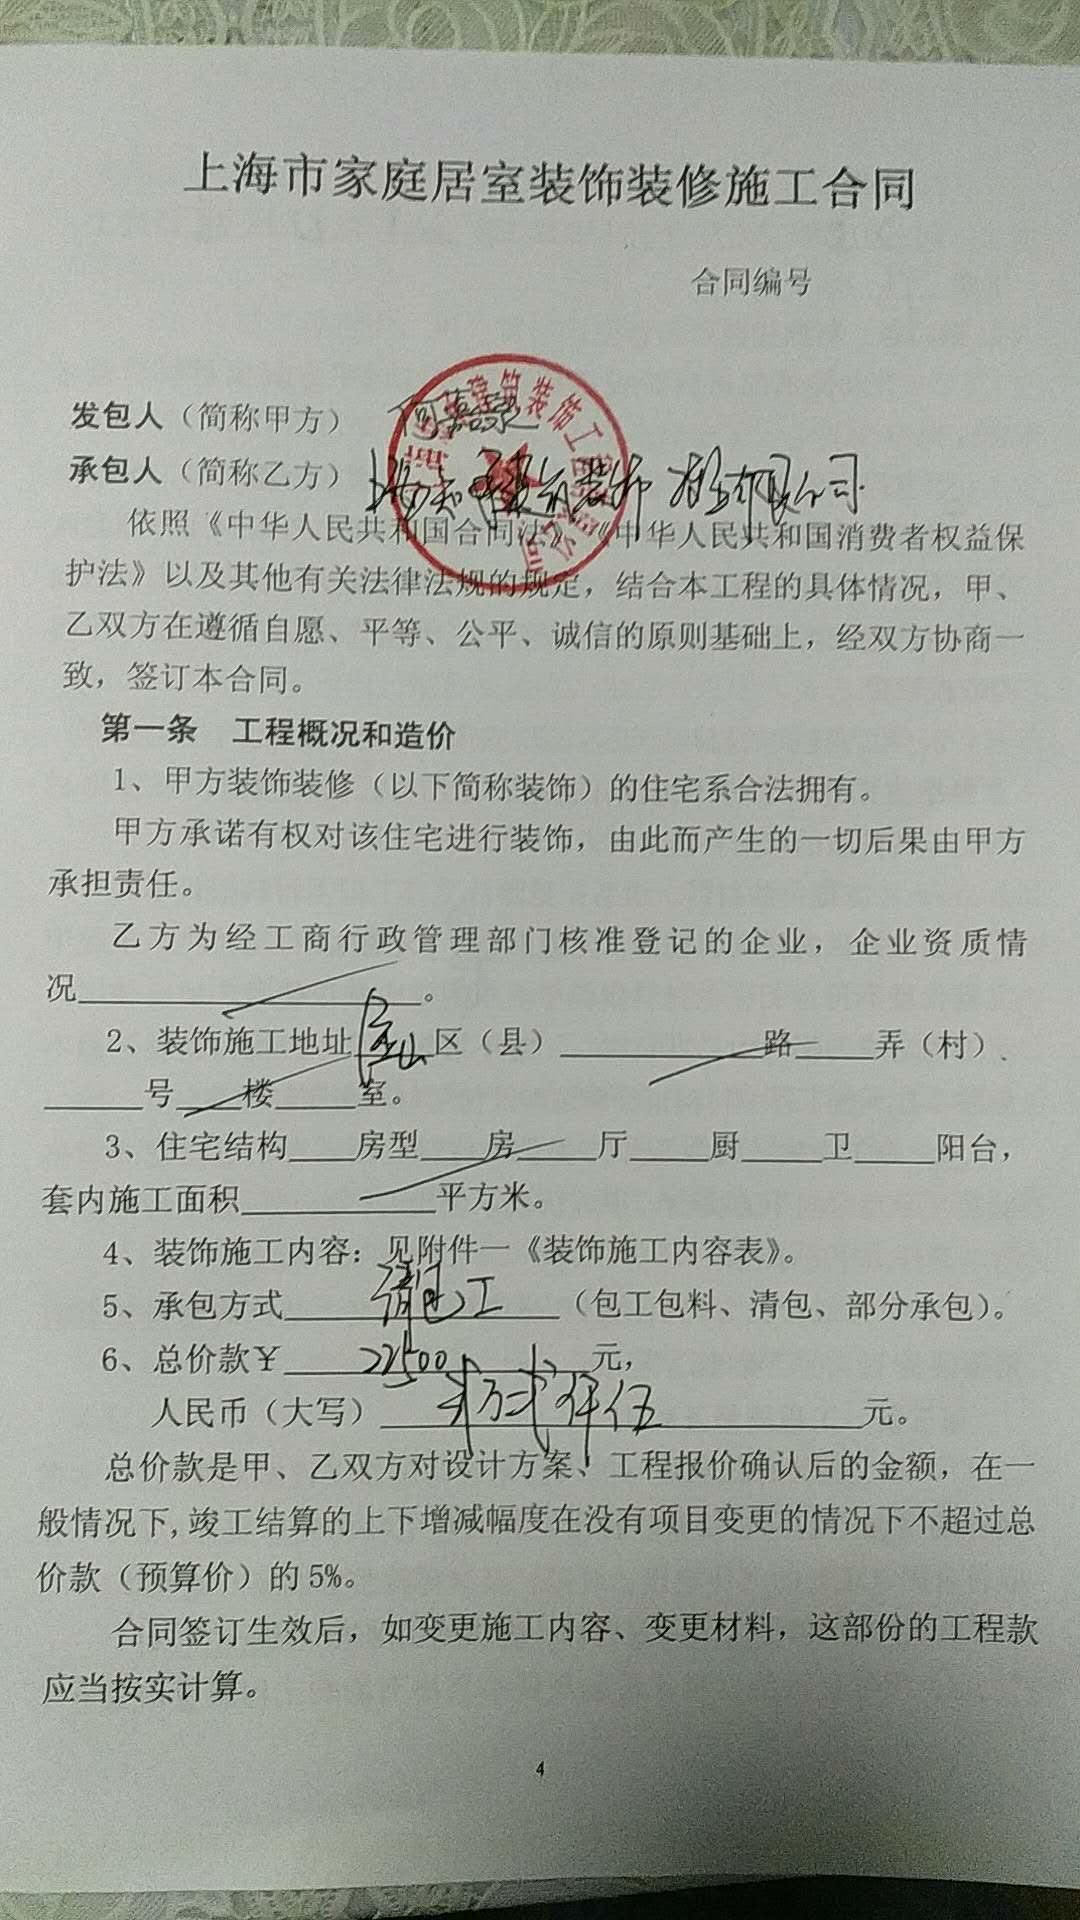 上海市家庭居室装饰装修施工合同
合同编号
发包人（简称甲方）
承包人（简称乙方） 上海 建筑装饰 有限公司
依照《中华人民共和国合同法》《中华人民共和国消费者权益保
护法》以及其他有关法律法规的规定，结合本工程的具体情况，甲、
乙双方在遵循自愿、平等、公平、诚信的原则基础上，经双方协商一
致，签订本合同。
第一条 工程概况和造价
1、甲方装饰装修（以下简称装饰）的住宅系合法拥有。
甲方承诺有权对该住宅进行装饰，由此而产生的一切后果由甲方
承担责任。
乙方为经工商行政管理部门核准登记的企业，企业资质情
况____________________。
2、装饰施工地址 宝山 区（县）____________路____弄（村）、
______号____楼_____室。
3、住宅结构____房型____房____厅____厨____卫____阳台，
套内施工面积____________平方米。
4、装饰施工内容：见附件一《装饰施工内容表》。
5、承包方式 清包工 （包工包料、清包、部分承包）。
6、总价款￥ 22500 元，
人民币（大写） 贰万贰仟伍 元。
总价款是甲、乙双方对设计方案、工程报价确认后的金额，在一
般情况下,竣工结算的上下增减幅度在没有项目变更的情况下不超过总
价款（预算价）的5%。
合同签订生效后，如变更施工内容、变更材料，这部份的工程款
应当按实计算。
4